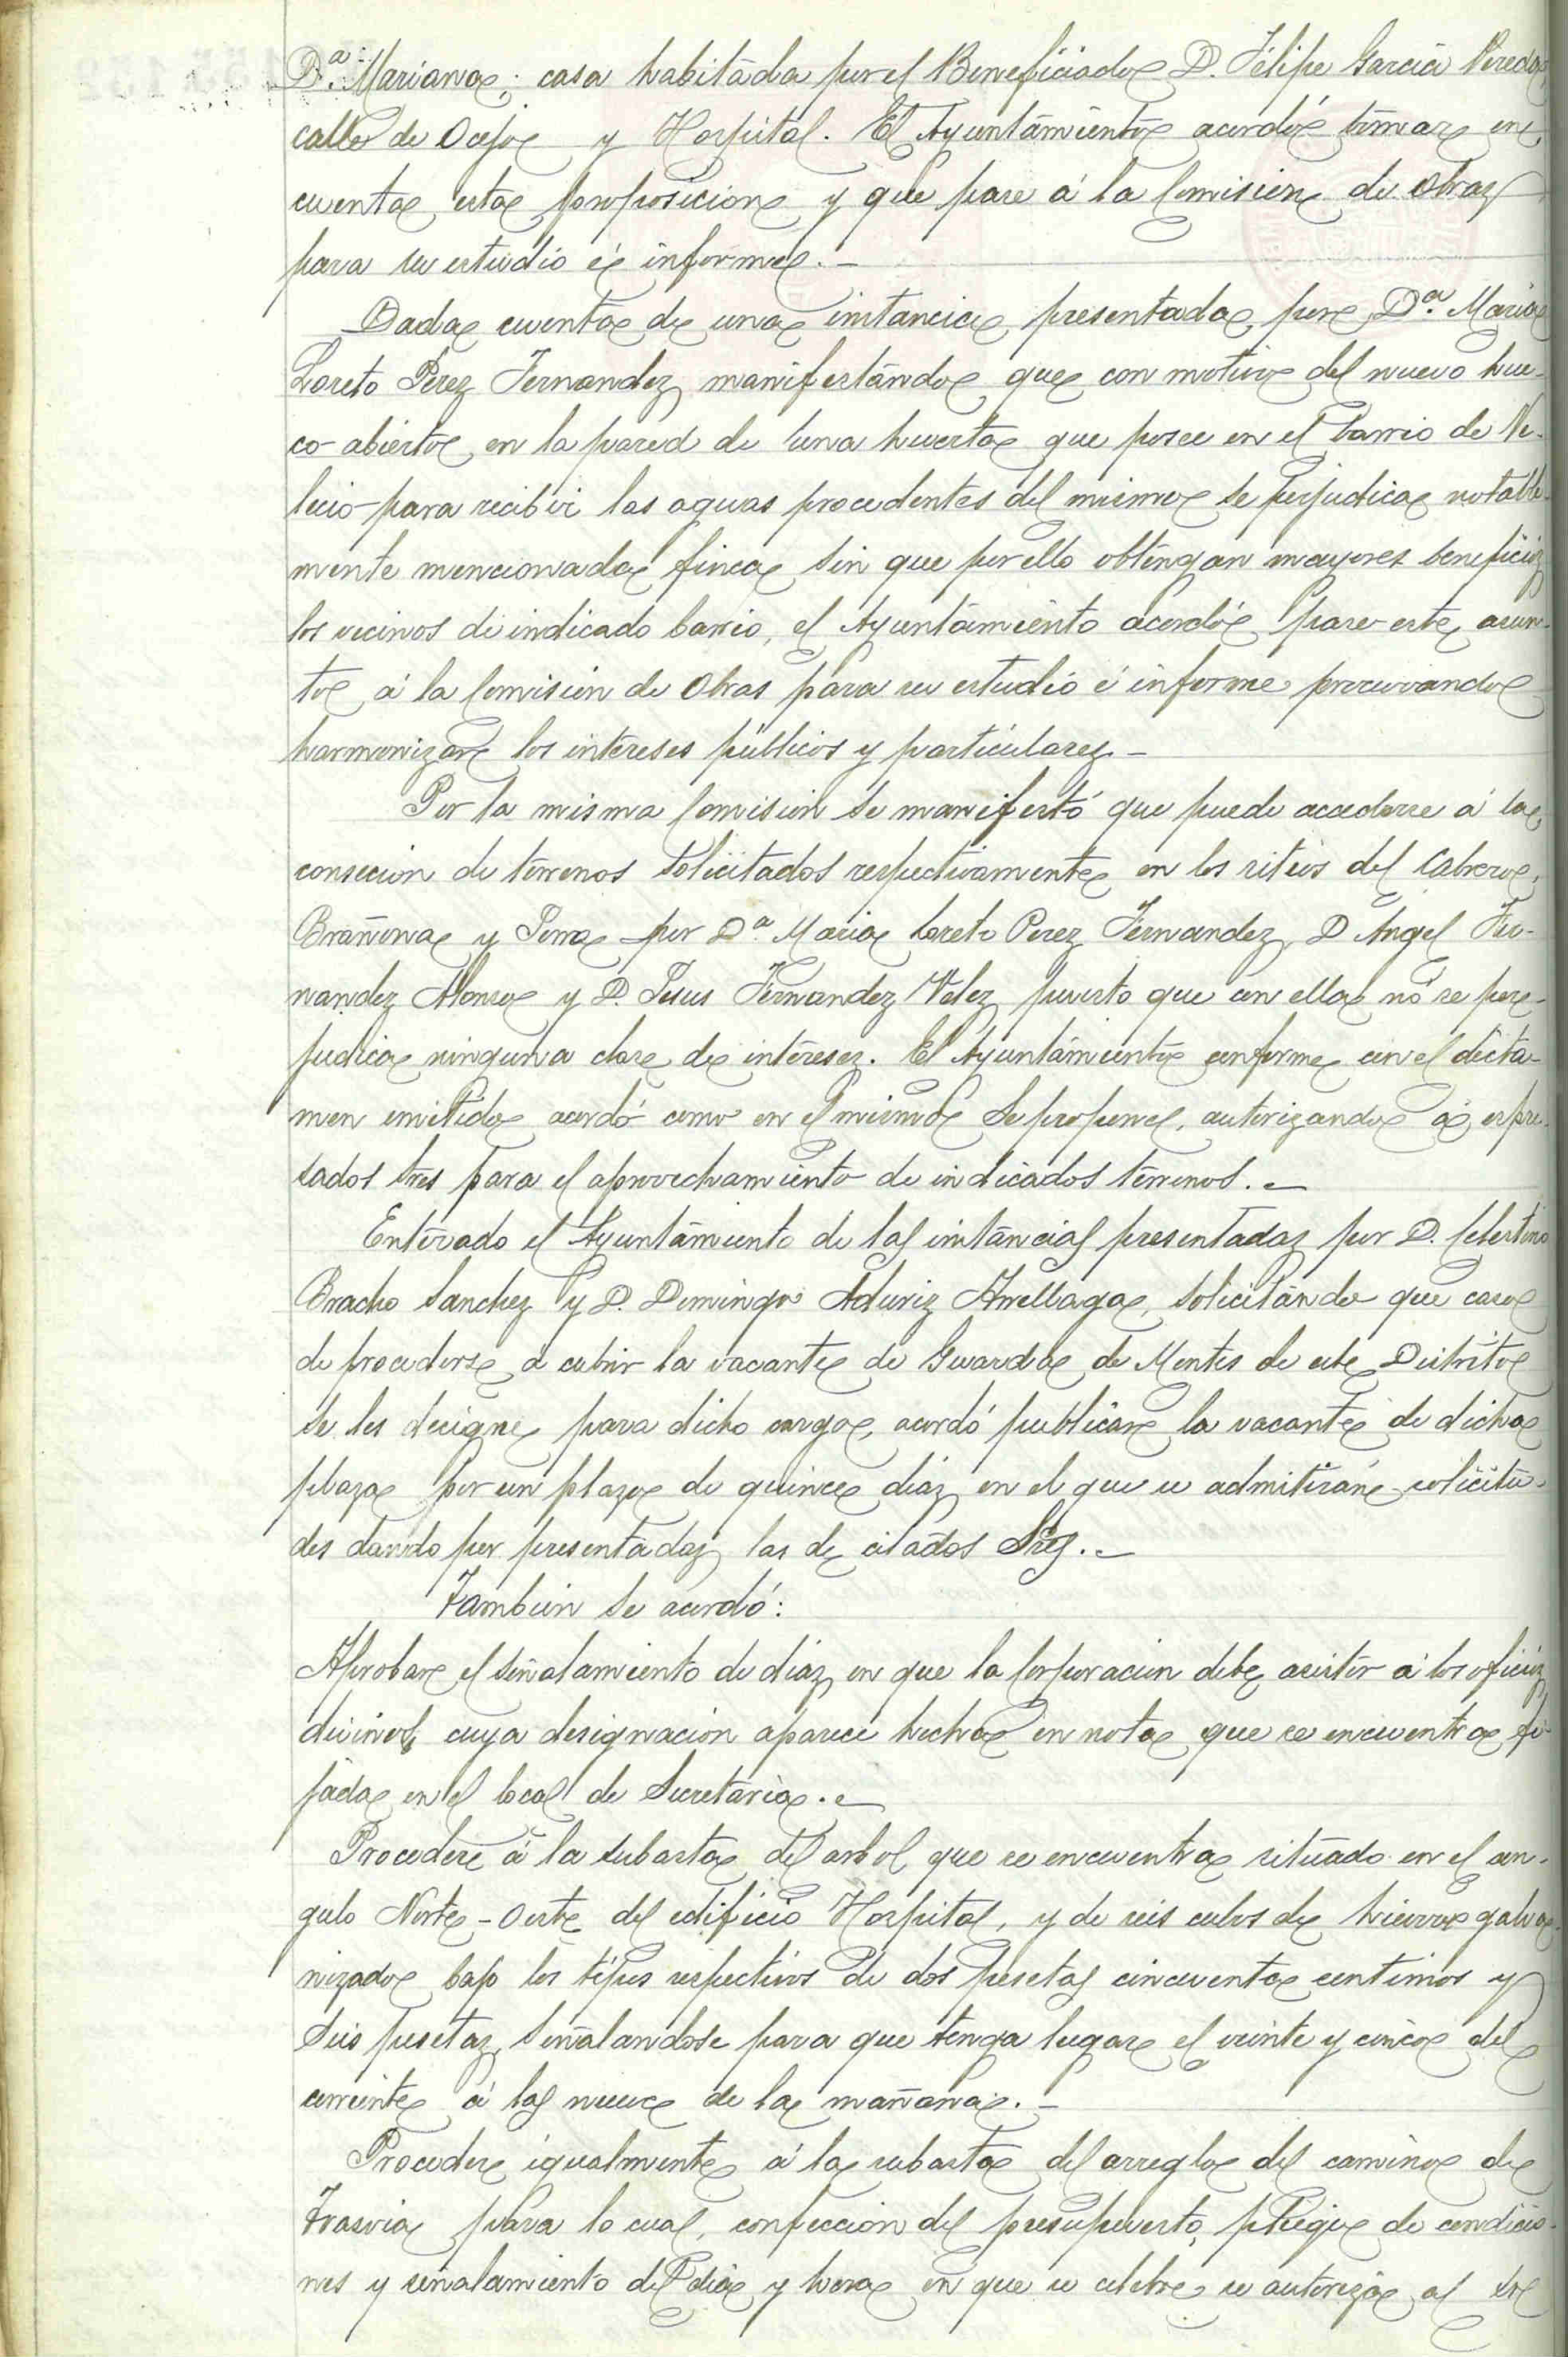 Dª. Mariana; casa habitada por el Beneficiado D. Felipe Garcia Pereda,
calle de Ocejo y Hospital. El Ayuntamiento acordó tomar en
cuenta esta proposicion y que pase á la Comision de Obras
para su estudio é informe.-
Dada cuenta de una instancia presentada por Dª. Maria
Loreto Perez Fernandez manifestando que con motivo del nuevo hue-
co abierto en la pared de una huerta que posee en el barrio de Ve-
lecio para recibir las aguas procedentes del mismo se perjudica notable-
mente mencionada finca, sin que por ello obtengan mayores beneficios
los vecinos de indicado barrio, el Ayuntamiento acordó pase este asun-
to á la Comision de Obras para su estudio é informe procurando
harmonizar los intereses públicos y particulares.-
Por la misma Comision se manifestó que puede accederse á la
consecion de terrenos solicitados respectivamente en los sitios del Cabrero,
Brañona y Pera por Dª. Maria Loreto Perez Fernandez, D. Angel Fer-
nandez Alonso y D. Jesus Fernandez Velez puesto que con ella no se per-
judica ninguna clase de intereses. El Ayuntamiento conforme con el dicta-
men emitido acordó como en el mismo se propone, autorizando á espre-
sados tres para el aprovechamiento de indicados terrenos.-
Enterado el Ayuntamiento de las instancias presentadas por D. Celestino
Bracho Sanchez y D. Domingo Aduriz Arrellaga, solicitando que caso
de procederse a cubrir la vacante de Guarda de Montes de este Distrito
se les decigne para dicho cargo, acordó publicar la vacante de dicha
plaza por un plazo de quince dias en el que se admitirán solicitu-
des dando por presentadas las de citados Sres.-
Tambien se acordó:
Aprobar el señalamiento de dias en que la Corporacion debe asistir á los oficios
divinos, cuya designacion aparece hecha en nota que se encuentra fi-
jada en el local de Secretaria.-
Proceder á la subasta del arbol que se encuentra situado en el an-
gulo Norte-Oeste del edificio Hospital, y de seis cubos de hierro galva-
nizado bajo los tipos respectivos de dos pesetas cincuenta centimos y
seis pesetas, señalandose para que tenga lugar el veinte y cinco del
corriente á las nueve de la mañana.-
Proceder igualmente á la subasta del arreglo del camino de
Trasvia para lo cual, confeccion del presupuesto, pliego de condicio-
nes y señalamiento del dia y hora en que se celebre se autoriza al Sr